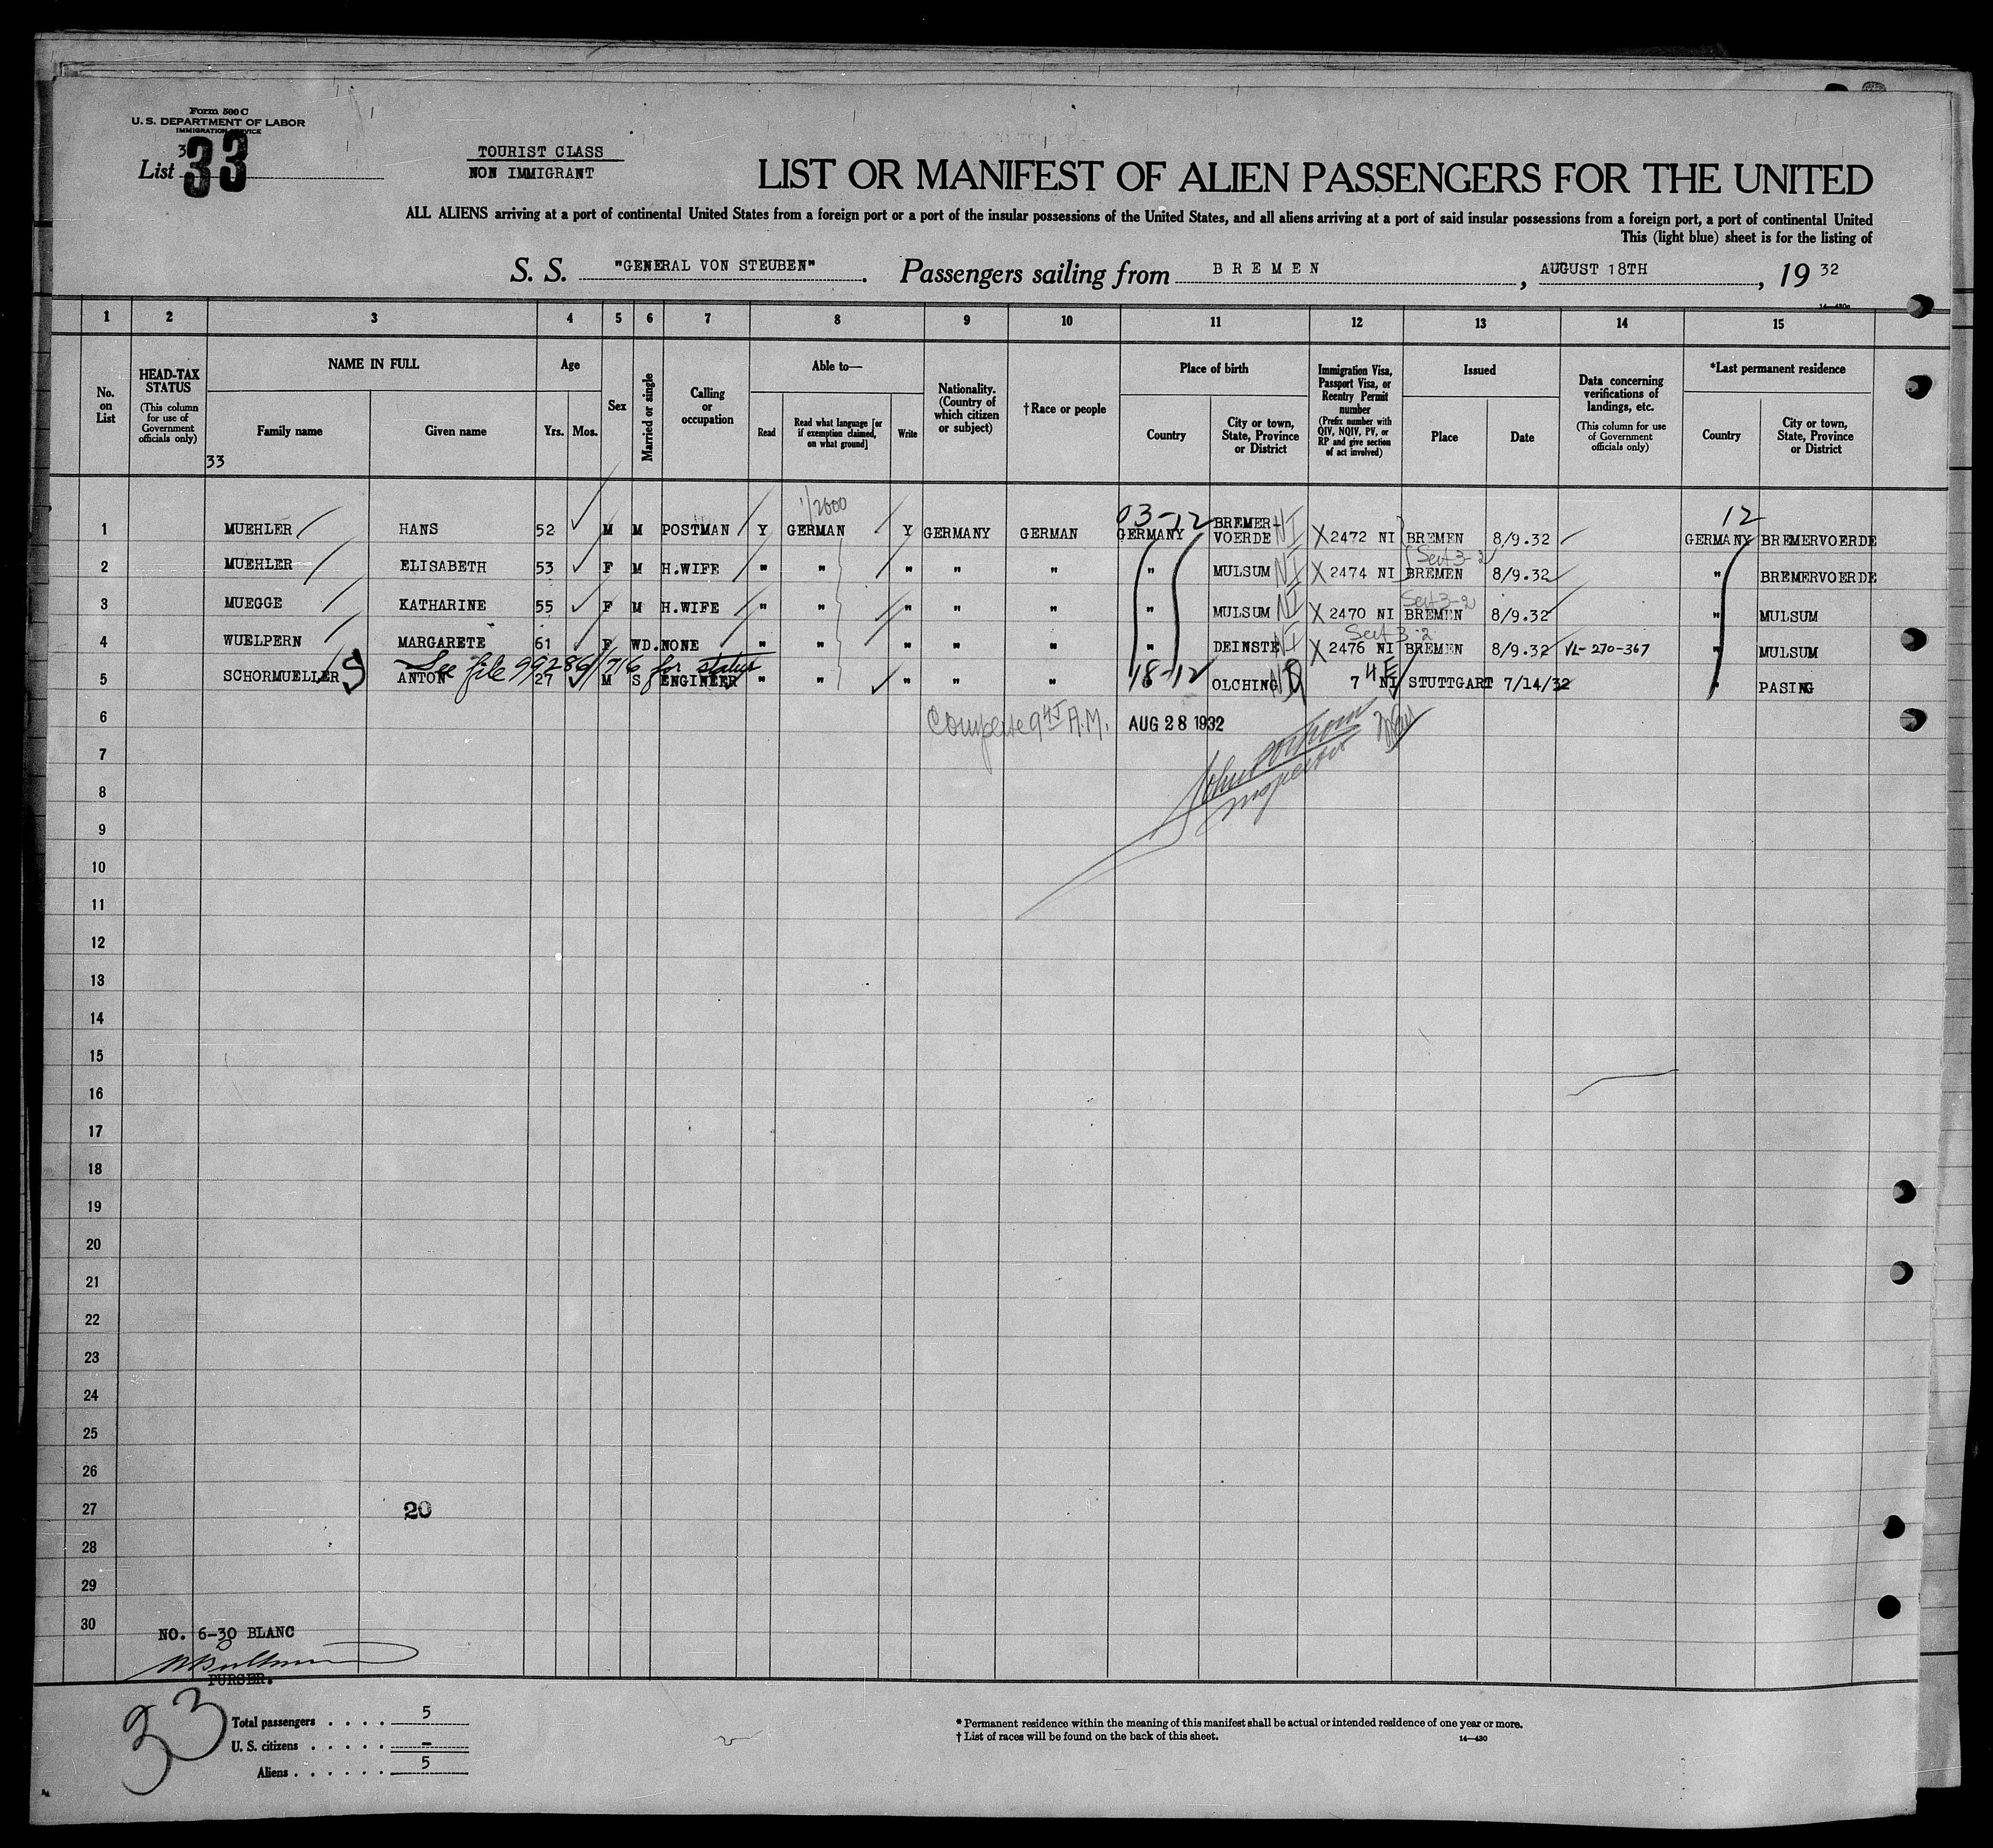 Form 500 C
U. S. DEPARTMENT OF LABOR
IMMIGRATION SERVICE
3
List 33
TOURIST CLASS
NON IMMIGRANT
LIST OR MANIFEST OF ALIEN PASSENGERS FOR THE UNITED
ALL ALIENS arriving at a port of continental United States from a foreign port or a port of the insular possessions of the United States, and all aliens arriving at a port of said insular possessions from a foreign port, a port of continental United
This (light blue) sheet is for the listing of
S. S. "GENERAL VON STEUBEN". Passengers sailing from BREMEN, AUGUST 18TH, 19 32
1 2 3 4 5 6 7 8 9 10 11 12 13 14 15
No. on List
HEAD-TAX STATUS (This column for use of Government officials only)
NAME IN FULL
Family name
Given name
33
Age
Yrs. Mos.
Sex
Married or single
Calling or occupation
Able to—
Read
Read what language [or if exemption claimed, on what ground]
Write
Nationality. (Country of which citizen or subject)
†Race or people
Place of birth
Country
City or town, State, Province or District
Immigration Visa, Passport Visa, or Reentry Permit number (Prefix number with QIV, NQIV, PV, or RP and give section of act involved)
Issued
Place
Date
Data concerning verifications of landings, etc. (This column for use of Government officials only)
*Last permanent residence
Country
City or town, State, Province or District
1/2600
03-12
12
1 MUEHLER HANS 52 M M POSTMAN Y GERMAN Y GERMANY GERMAN GERMANY BREMER-VOERDE NI X 2472 NI BREMEN 8/9.32 GERMANY BREMERVOERDE
Sect 3-2
2 MUEHLER ELISABETH 53 F M H.WIFE " " " " " " MULSUM NI X 2474 NI BREMEN 8/9.32 " BREMERVOERDE
Sect 3-2
3 MUEGGE KATHARINE 55 F M H.WIFE " " " " " " MULSUM NI X 2470 NI BREMEN 8/9.32 " MULSUM
Sect 3-2
4 WUELPERN MARGARETE 61 F WD. NONE " " " " " " DEINSTE NI X 2476 NI BREMEN 8/9.32 VL-270-367 " MULSUM
See file 99286/716 for status
18-12
5 SCHORMUELLER S ANTON 27 M S ENGINEER " " " " " OLCHING 7 4E NI STUTTGART 7/14/32 " PASING
6 9 45 A.M. AUG 28 1932
7
8 Inspector
9
10
11
12
13
14
15
16
17
18
19
20
21
22
23
24
25
26
27 20
28
29
30
NO. 6-30 BLANC
PURSER.
33
Total passengers . . . . 5
U. S. citizens . . . . . –
Aliens . . . . . . 5
* Permanent residence within the meaning of this manifest shall be actual or intended residence of one year or more.
† List of races will be found on the back of this sheet.
14—430